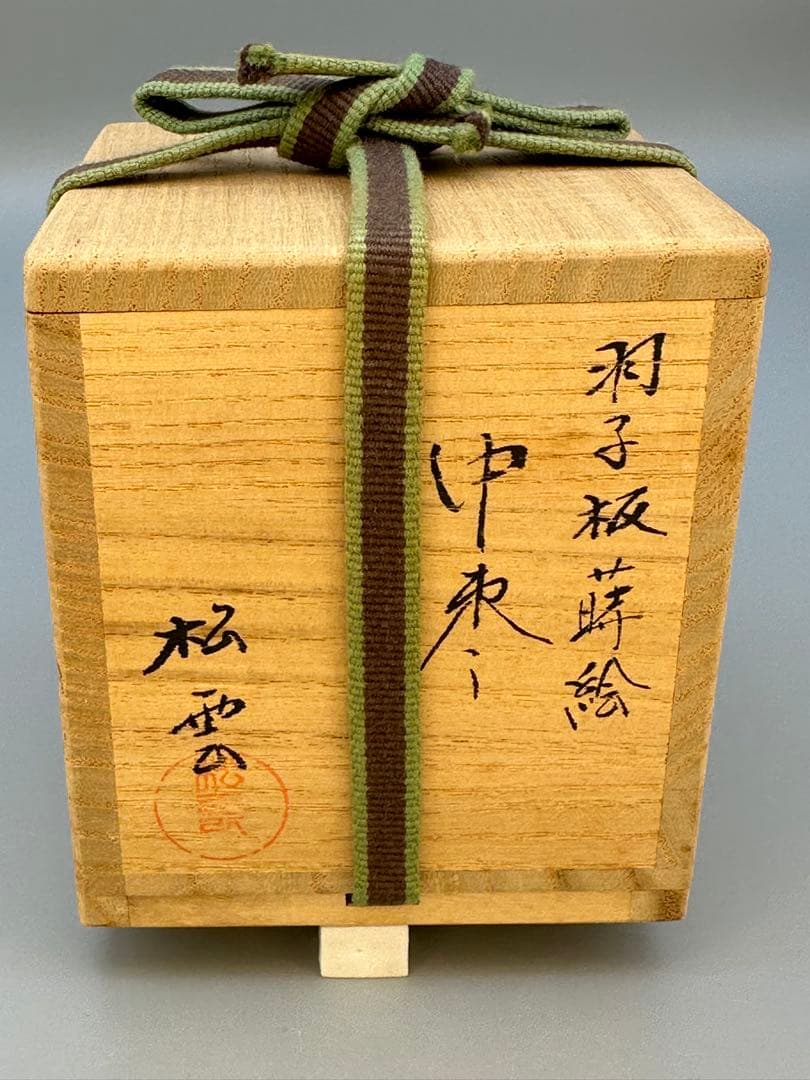 羽子板蒔絵
中棗
松雲